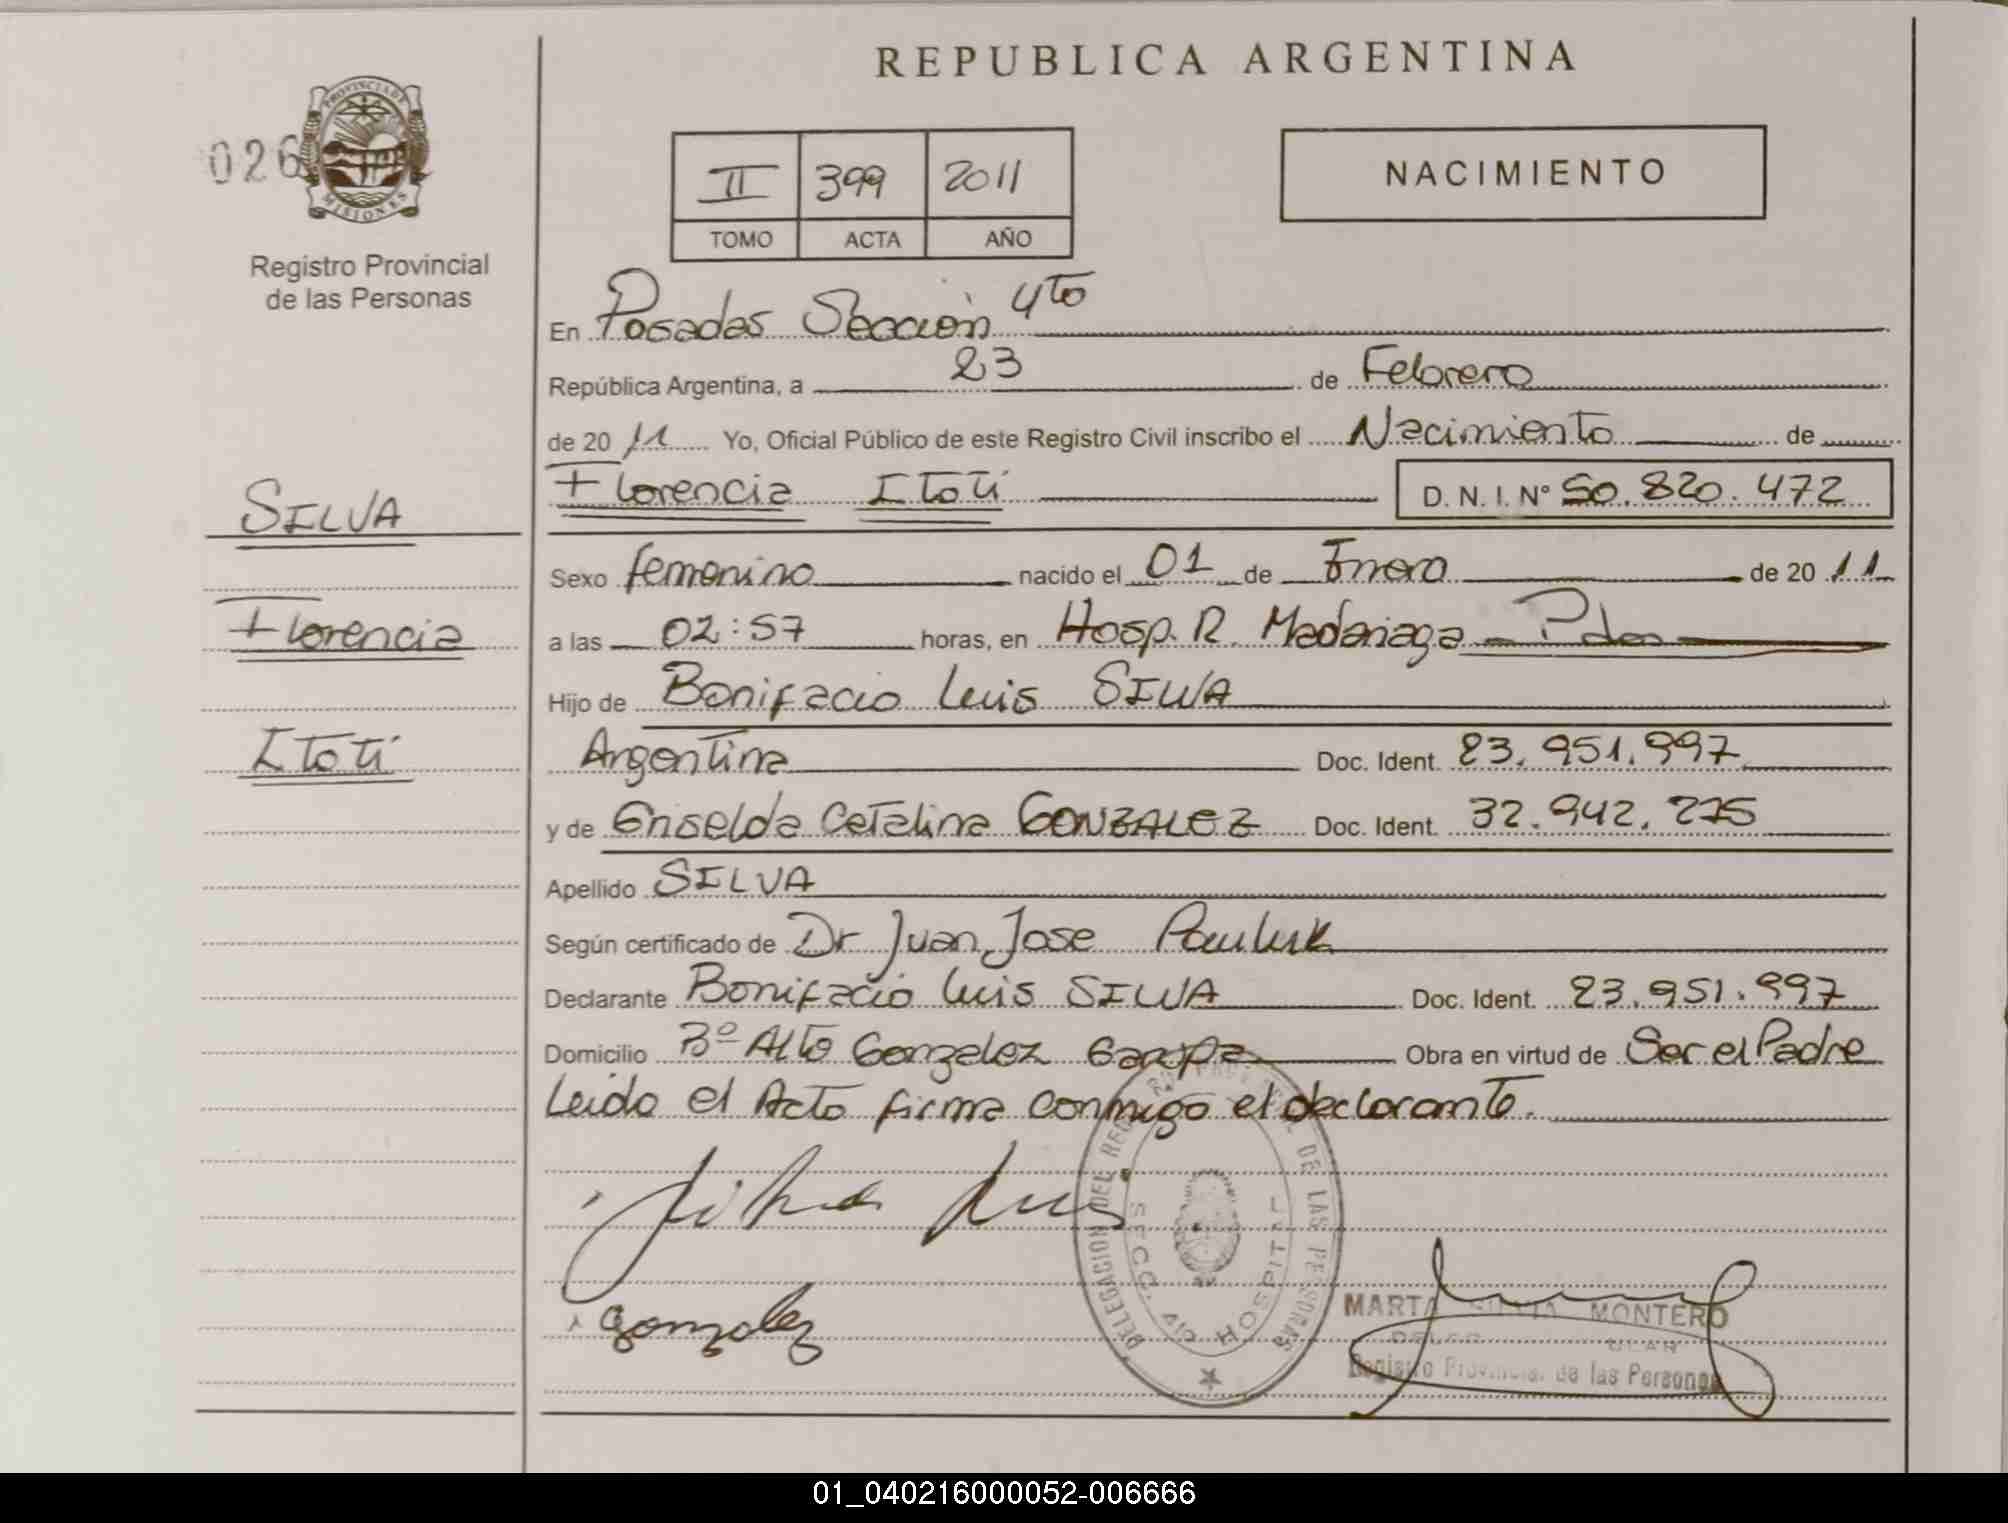 REPUBLICA ARGENTINA
026
PROVINCIA DE MISIONES
Registro Provincial
de las Personas
II 399 2011
TOMO ACTA AÑO
NACIMIENTO
En Posadas Sección 4to
República Argentina, a 23 de Febrero
de 20 11 Yo, Oficial Público de este Registro Civil inscribo el Nacimiento de
Florencia Itatí D. N. I. Nº 50.820.472
SILVA
Florencia
Itatí
Sexo femenino nacido el 01 de Enero de 20 11
a las 02:57 horas, en Hosp. R. Madariaga Pdas
Hijo de Bonifacio Luis SILVA
Argentina Doc. Ident. 23.951.997
y de Griselda Catalina GONZALEZ Doc. Ident. 32.942.275
Apellido SILVA
Según certificado de Dr Juan Jose Pauluk
Declarante Bonifacio Luis SILVA Doc. Ident. 23.951.997
Domicilio Bº Alto Gonzalez Garupa Obra en virtud de Ser el Padre
Leido el Acto firma conmigo el declarante.
Silva Luis
Gonzalez
DELEGACION DEL REGISTRO PROVINCIAL DE LAS PERSONAS
SECC. 4ta HOSPITAL
MARTA MONTERO
Registro Provincial de las Personas
01_040216000052-006666